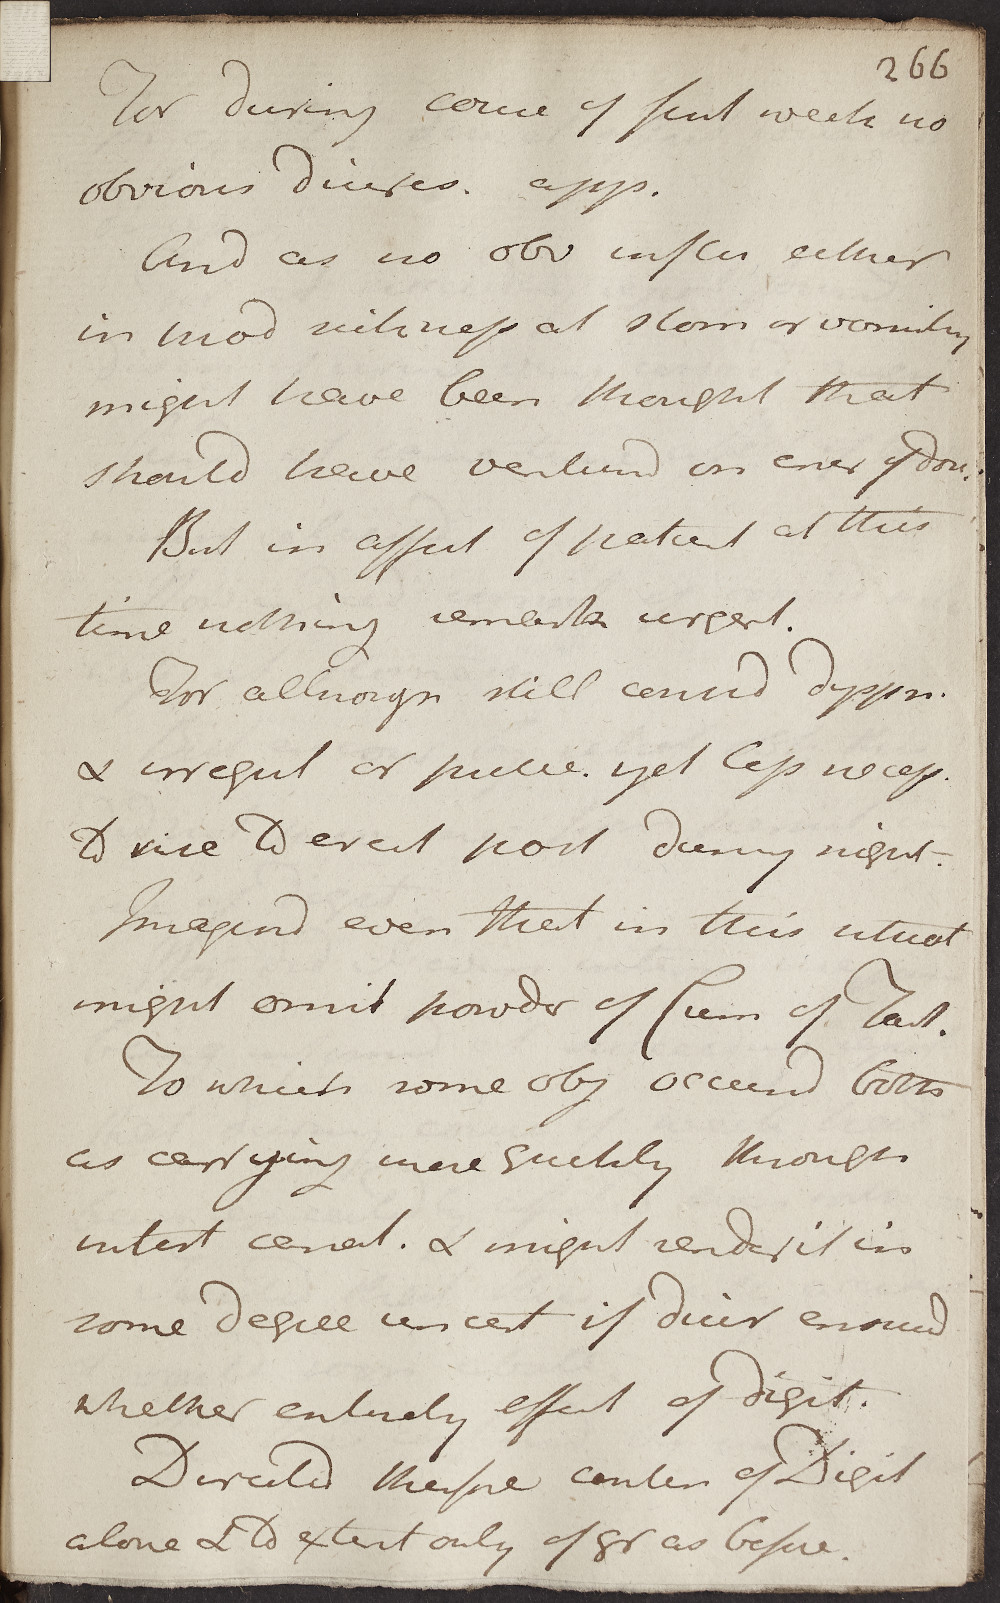 266
For during course of first week no
obvious diures. app.
And as no obv influ either
in mod sickness at stom or vomiting
might have been thought that
should have venturd on encr of dose.
But in aspect of patient at this
time nothing remark urgent.
For although still contind dyspn.
& irregul of pulse. yet less necess.
to rise to erect post during night.
Imagind even that in this situat
might omit powder of Crem of Tart.
To which some obj occurrd both
as carrying more quickly through
intest canal. & might render it in
some degree uncert if diur ensued
whether entirely effect of digit.
Directed therfore contin of Digit
alone & to extent only of gr as before.